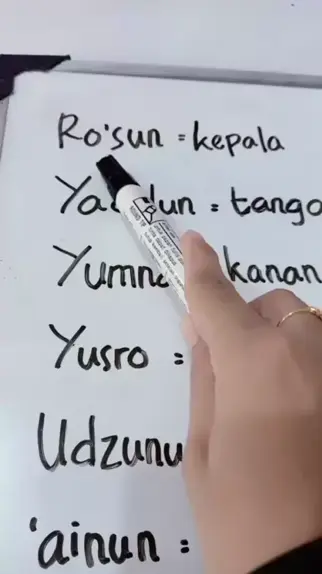 Ro'sun = kepala
= tango
Yumna kanan
Yusro =
Udzunu
'ainun =